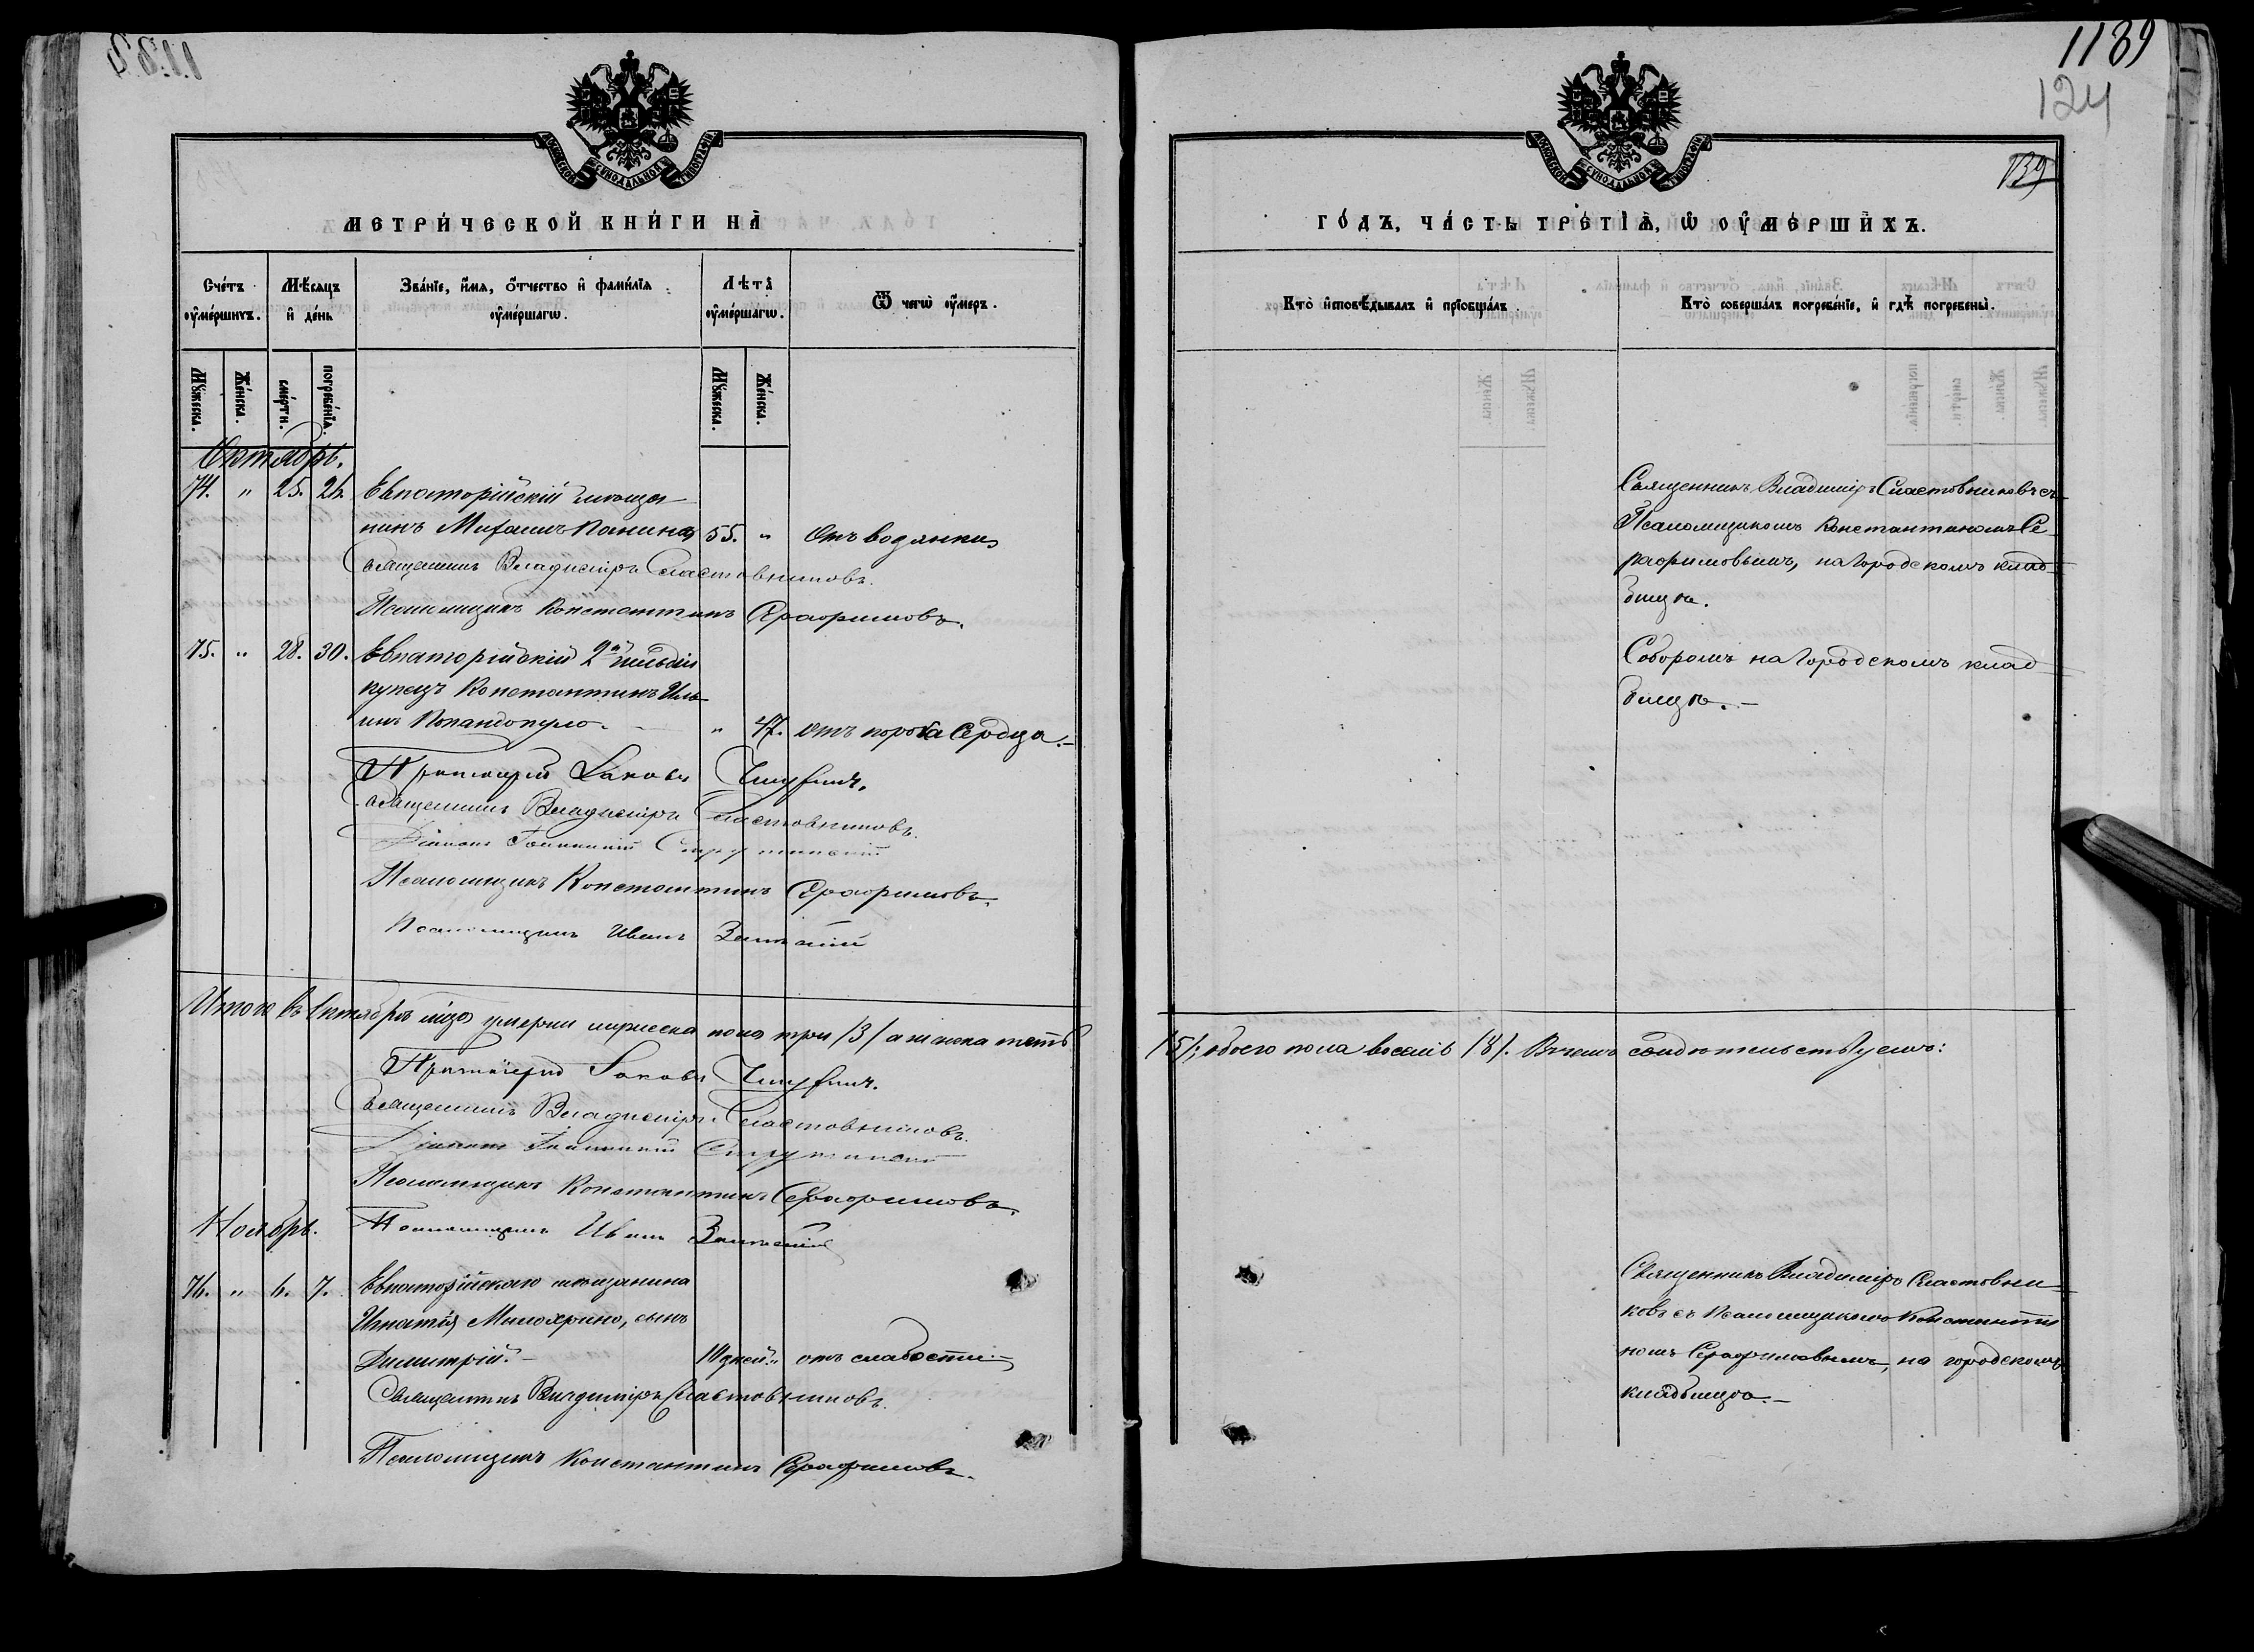 1189
124
139
МОСКОВСКОЙ СѴНОДАЛЬНОЙ ТИПОГРАФІИ
МЕТРИ́ЧЕСКОЙ КНИ́ГИ НА̀
Сче́тъ ᲂу҆ме́ршихъ.
Мѣ́сяцъ и҆ де́нь
Зва́нїе, и҆́мя, ѻ҆́тчество и҆ фами́лїя ᲂу҆ме́ршагѡ.
Лѣ́та ᲂу҆ме́ршагѡ.
Ѿ чегѡ̀ ᲂу҆́меръ.
Мꙋ́жеска.
Же́нска.
сме́рти.
погребе́нїѧ.
Мꙋ́жеска.
Же́нска.
Октябрь.
74. " 25. 26. Евпаторійскій мѣща-
нинъ Михаилъ Панина 55. " Отъ водянки
Священникъ Владиміръ Сластовниковъ.
Псаломщикъ Константинъ Серафимовъ.
75. " 28. 30. Евпаторійскій 2й гильдіи
купецъ Константинъ Иль-
инъ Попандопуло. " 47. Отъ порока Сердца.
Протоіерей Іаковъ
Священникъ Владиміръ Сластовниковъ.
Діаконъ
Псаломщикъ Константинъ Серафимовъ.
Псаломщикъ Иванъ
Итого въ Октябрѣ мѣсяцѣ умерли мужеска пола три /3/ а женска пять
Протоіерей Іаковъ
Священникъ Владиміръ Сластовниковъ.
Діаконъ
Псаломщикъ Константинъ Серафимовъ.
Псаломщикъ Иванъ
Ноябрь.
76. " 6. 7. Евпаторійскаго мѣщанина
Игнатія Милохрино, сынъ
Димитрій. 10 дней. " отъ слабости
Священникъ Владиміръ Сластовниковъ.
Псаломщикъ Константинъ Серафимовъ.
МОСКОВСКОЙ СѴНОДАЛЬНОЙ ТИПОГРАФІИ
ГО́ДЪ, ЧА́СТЬ ТРЕ́ТІѦ, Ѡ҆ ᲂУ҆МЕ́РШИХЪ.
Кто̀ и҆сповѣ́дывалъ и҆ прїѡбща́лъ.
Кто̀ соверша́лъ погребе́нїе, и҆ гдѣ̀ погребены̀.
Священникъ Владиміръ Сластовниковъ съ
Псаломщикомъ Константиномъ Се-
рафимовымъ, на Городскомъ клад-
бищѣ.
Соборомъ на Городскомъ клад-
бищѣ.
/5/; обоего пола восемь /8/. Въ чемъ свидѣтельствуемъ:
Священникъ Владиміръ Сластовни-
ковъ съ Псаломщикомъ Константи-
номъ Серафимовымъ, на городскомъ
кладбищѣ.